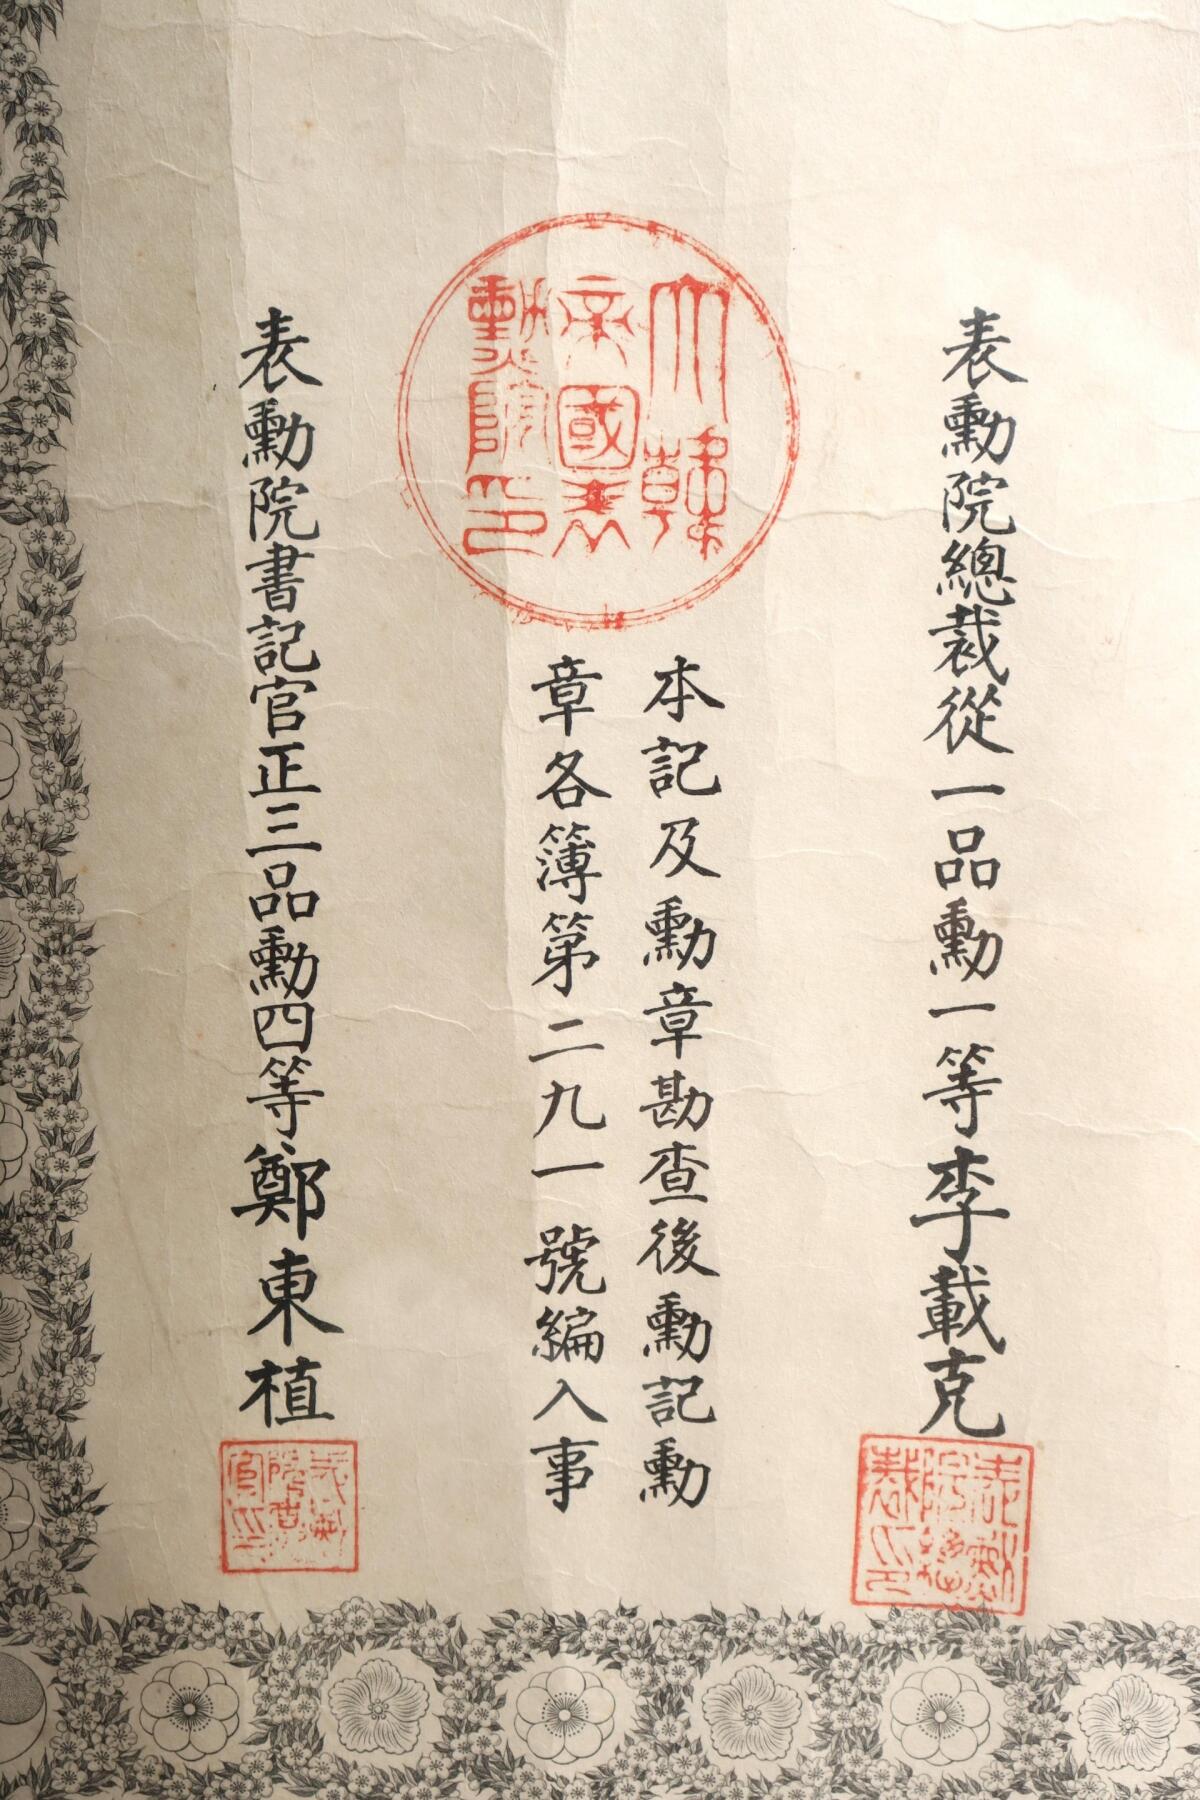 表勳院總裁從一品勳一等李載克
大韓
帝國表
勳院印
本記及勳章勘查後勳記勳
章各簿第二九一號編入事
表勳院書記官正三品勳四等鄭東植
表勳
院總
裁之印